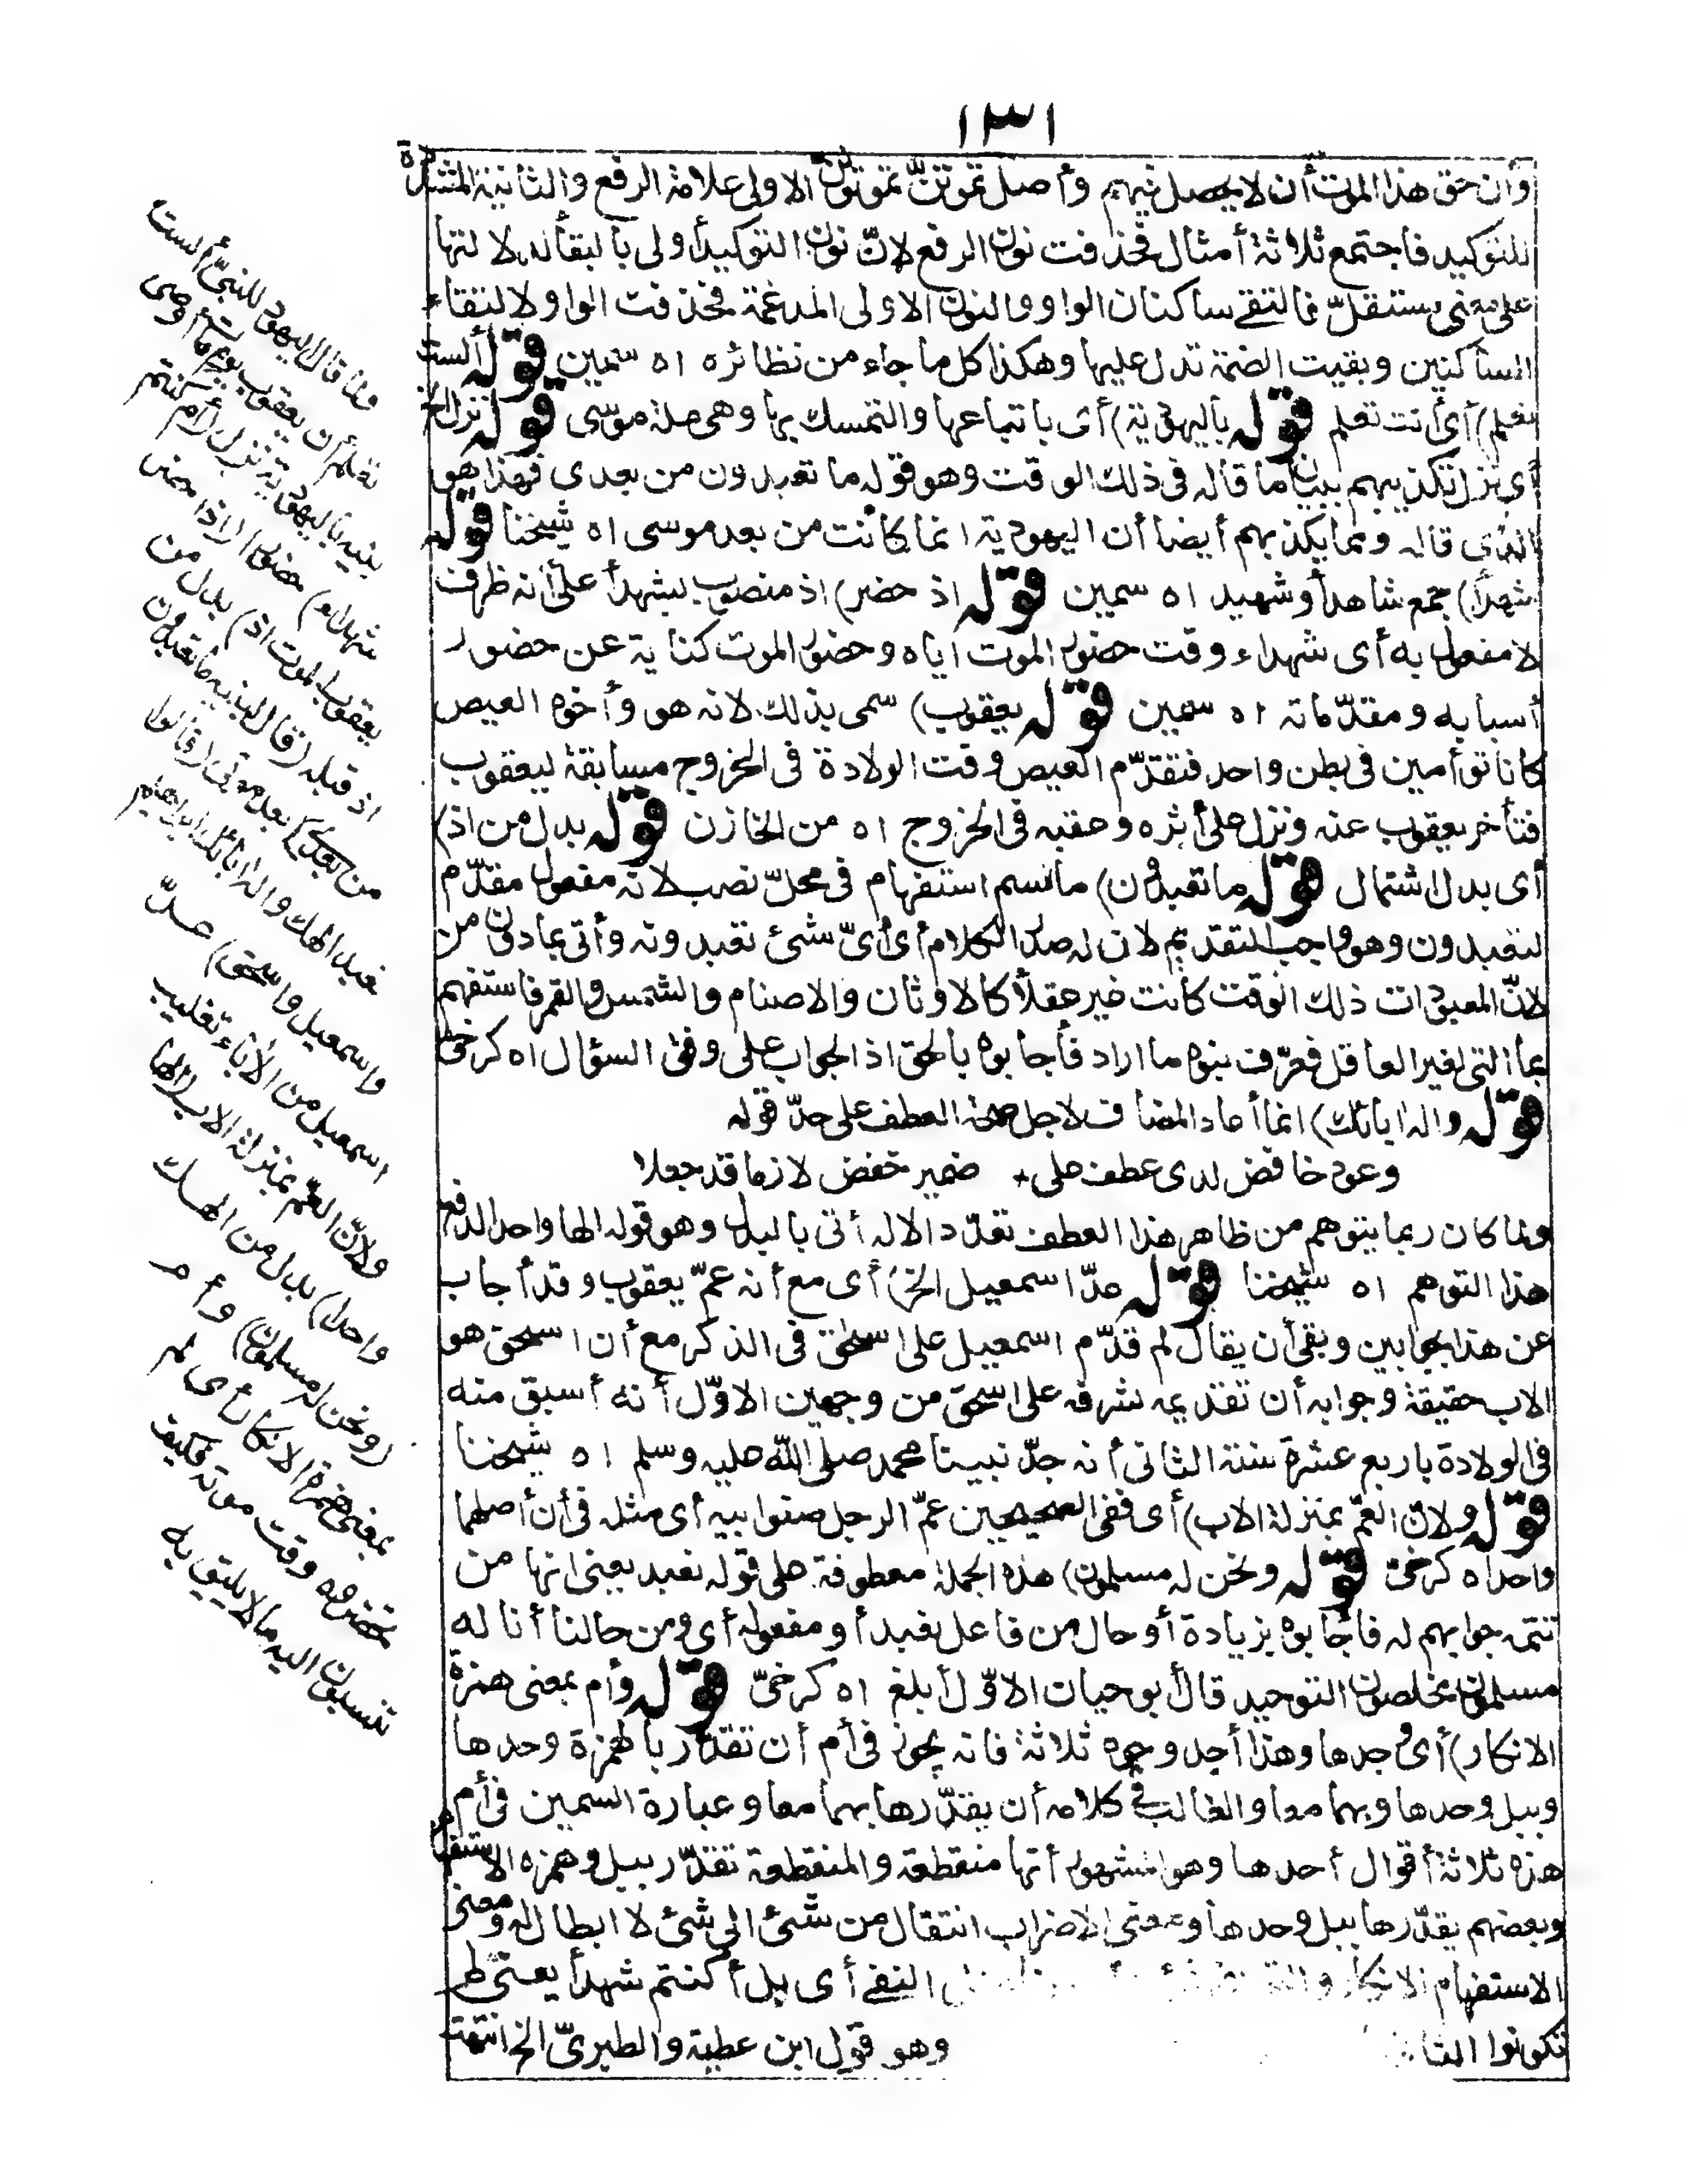 ١٣١
وأن حق هذا الموت أن لا يحصل فيهم وأصل تموتنّ تموتونن الاولى علامة الرفع والثانية المشددة
للتوكيد فاجتمع ثلاثة أمثال فحذفت نون الرفع لانّ نون التوكيد أولى بالبقاء لدلالتها
على معنى مستقلّ فالتقى ساكنان الواو والنون الاولى المدغمة فحذفت الواو لالتقاء
الساكنين وبقيت الضمة تدل عليها وهكذا كل ما جاء من نظائره اه سمين قوله ألست
تعلم) أى أنت تعلم قوله باليهودية) أى باتباعها والتمسك بها وهى ملة موسى قوله نزل الخ
أى نزل تكذيبهم ببيان ما قاله فى ذلك الوقت وهو قوله ما تعبدون من بعدى فهذا هو
الذى قاله ومما يكذبهم أيضا أن اليهودية انما كانت من بعد موسى اه شيخنا قوله
شهداء) جمع شاهد أو شهيد اه سمين قوله اذ حضر) اذ منصوب بشهداء على أنه ظرف
لا مفعول به أى شهداء وقت حضور الموت اياه وحضور الموت كناية عن حضور
أسبابه ومقدّماته اه سمين قوله يعقوب) سمى بذلك لانه هو وأخوه العيص
كانا توأمين فى بطن واحد فتقدّم العيص وقت الولادة فى الخروج مسابقة ليعقوب
فتأخر يعقوب عنه ونزل على أثره وعقبه فى الخروج اه من الخازن قوله بدل من اذ)
أى بدل اشتمال قوله ما تعبدون) ما اسم استفهام فى محلّ نصب لانه مفعول مقدّم
لتعبدون وهو واجب التقديم لان له صدر الكلام أى أىّ شئ تعبدونه وأتى بما دون من
لانّ المعبودات ذلك الوقت كانت غير عقلاء كالاوثان والاصنام والشمس والقمر فاستفهم
بما التى لغير العاقل فعرّف بنوه ما اراد فأجابوه بالحق اذ الجواب على وفق السؤال اه كرخى
قوله واله اٰبائك) انما أعاد المضاف لاجل صحة العطف على حدّ قوله
وعود خافض لدى عطف على * ضمير خفض لازما قد جعلا
ولما كان ربما يتوهم من ظاهر هذا العطف تعدّد الاله أتى بالبدل وهو قوله الها واحدا لدفع
هذا التوهم اه شيخنا قوله عدّ اسمعيل الخ) أى مع أنه عمّ يعقوب وقد أجاب
عن هذا بجوابين وبقى أن يقال لم قدّم اسمعيل على اسحٰق فى الذكر مع أن اسحٰق هو
الاب حقيقة وجوابه أن تقديمه لشرفه على اسحٰق من وجهين الاوّل أنه أسبق منه
فى الولادة باربع عشرة سنة الثانى أنه جدّ نبينا محمد صلى الله عليه وسلم اه شيخنا
قوله ولانّ العمّ بمنزلة الاب) أى ففى الصحيحين عمّ الرجل صنو أبيه أى مثله فى أن أصلهما
واحد اه كرخىّ قوله ونحن له مسلمون) هذه الجملة معطوفة على قوله نعبد يعنى انها من
تتمة جوابهم له فأجابوه بزيادة أو حال من فاعل نعبد أو مفعوله أى ومن حالنا أنا له
مسلمون مخلصون التوحيد قال أبو حيان الاوّل أبلغ اه كرخىّ قوله وأم بمعنى همزة
الانكار) أى وحدها وهذا أحد وجوه ثلاثة فانه يجوز فى أم أن تقدّر بالهمزة وحدها
وببل وحدها وبهما معا والغالب فى كلامه أن يقدّرها بهما معا وعبارة السمين فى أم
هذه ثلاثة أقوال أحدها وهو المشهور أنها منقطعة والمنقطعة تقدّر ببل وهمزة الاستفهام
وبعضهم يقدّرها ببل وحدها ومعنى الاضراب انتقال من شئ الى شئ لا ابطال له ومعنى
الاستفهام الانكار و النفى أى بل أكنتم شهداء يعنى لم
تكونوا الثا وهو قول ابن عطية والطبرىّ الخ انتهت
ولما قال اليهود للنبىّ ألست
تعلم أن يعقوب يوم مات أوصى
بنيه باليهودية نزل (أم كنتم
شهداء) حضورا (اذ حضر
يعقوب الموت اذ) بدل من
اذ قبله (قال لبنيه ما تعبدون
من بعدى) بعد موتى (قالوا
نعبد الهك واله اٰبائك ابراهيم
واسمعيل واسحٰق) عدّ
اسمعيل من الاٰباء تغليب
ولانّ العمّ بمنزلة الاب (الها
واحدا) بدل من الهك
(ونحن له مسلمون) وأم
بمعنى همزة الانكار أى لم
تحضروه وقت موته فكيف
تنسبون اليه ما لا يليق به